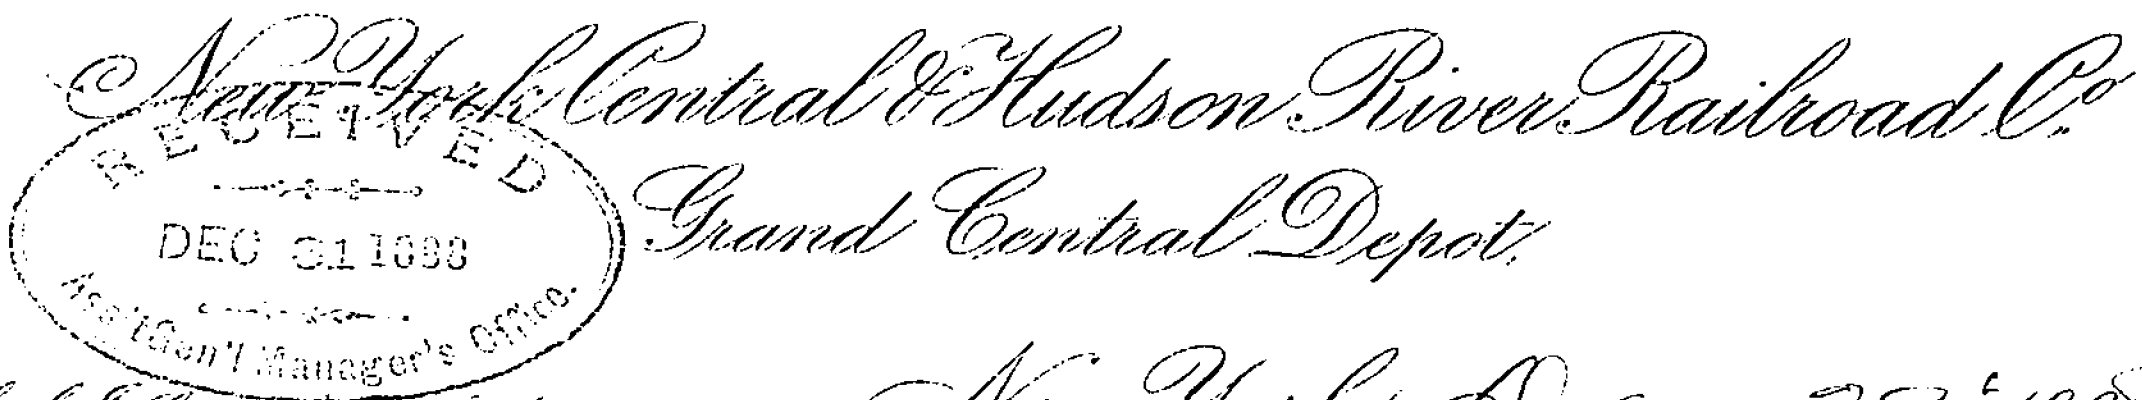 New York Central & Hudson River Railroad Co.
Grand Central Depot.
RECEIVED
DEC 31
Ass't Gen'l Manager's Office.
New York